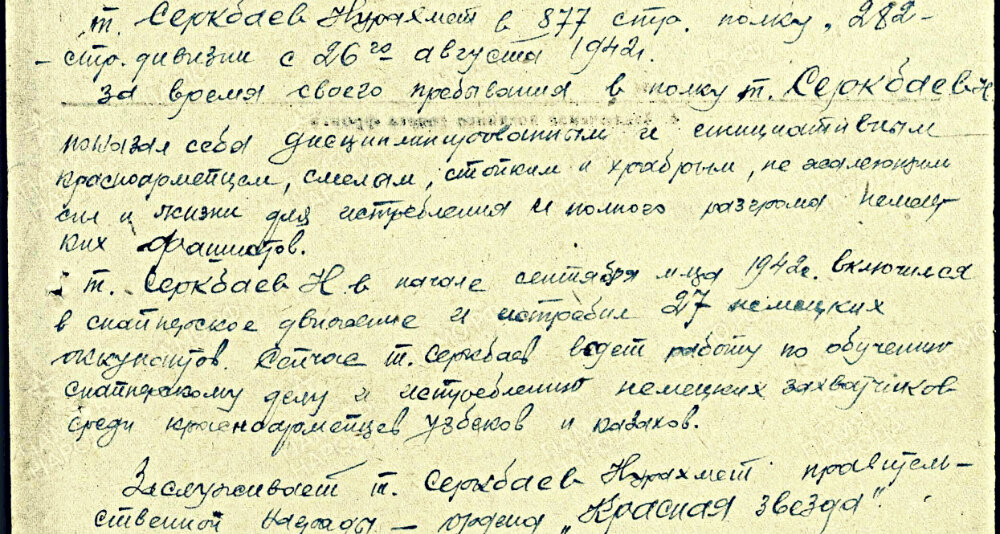 т. Серкбаев Нурахмет в 877 стр. полку, 282-
стр. дивизии с 26го августа 1942г.
За время своего пребывания в полку т. Серкбаев Н.
показал себя дисциплинированным и инициативным
красноармейцем, смелым, стойким и храбрым, не жалеющим
сил и жизни для истребления и полного разгрома немец-
ких фашистов.
т. Серкбаев Н. в начале сентября м-ца 1942г. включился
в снайперское движение и истребил 27 немецких
оккупантов. Сейчас т. Серкбаев ведет работу по обучению
снайперскому делу и истреблению немецких захватчиков
среди красноармейцев узбеков и казахов.
Заслуживает т. Серкбаев Нурахмет правитель-
ственной награды – ордена „Красная звезда".